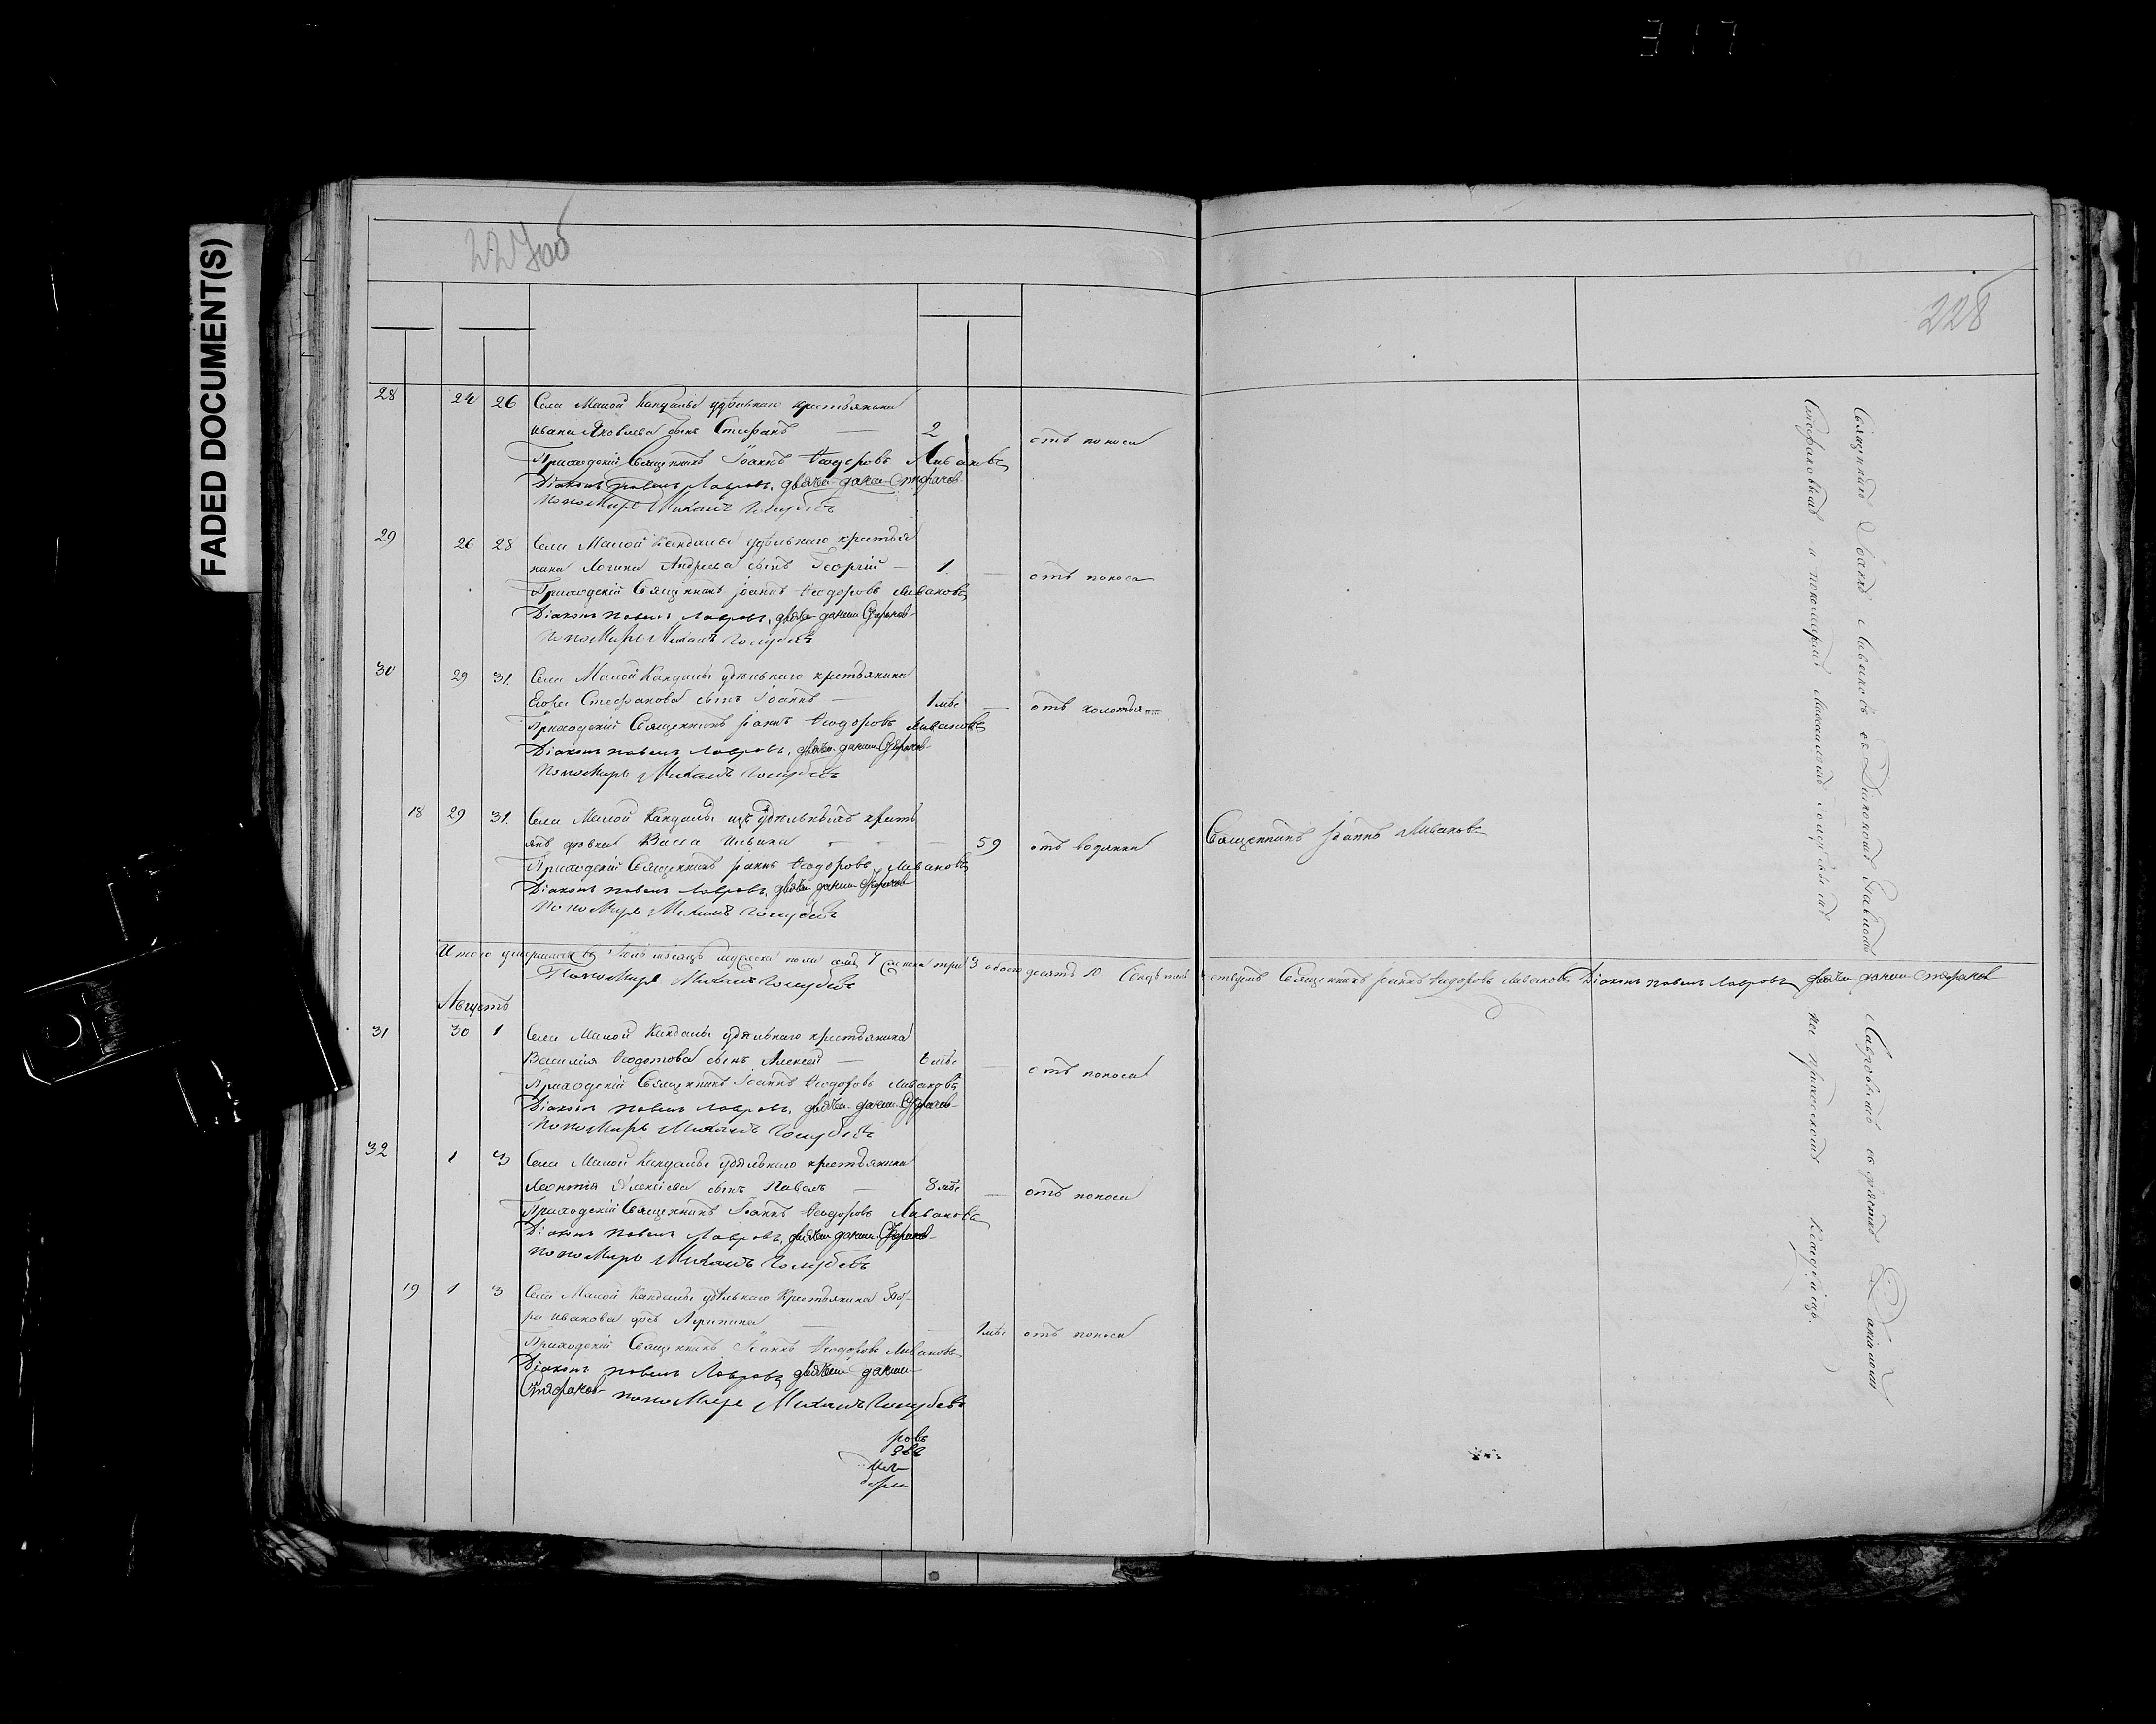 317
FADED DOCUMENT(S)
227об
228
28 24 26 Села Малой Кандалы удѣльнаго крестьянина
Ивана Яковлева сынъ Стефанъ — 2 отъ поноса
Приходскій Священникъ Іоаннъ Ѳеодоровъ Ливановъ
Діаконъ Павелъ Лавровъ, дьячекъ Данiилъ Стефановъ
Пономарь Михаилъ Голубевъ
29 26 28 Села Малой Кандалы удѣльнаго крестья
нина Логина Андреева сынъ Георгій — 1 — отъ поноса
Приходскій Священникъ Іоаннъ Ѳеодоровъ Ливановъ
Діаконъ Павелъ Лавровъ, дьячекъ Данiилъ Стефановъ
Пономарь Михаилъ Голубевъ
30 29 31. Села Малой Кандалы удѣльнаго крестьянина
Егора Стефанова сынъ Іоаннъ — 1 мѣс — отъ колотья
Приходскій Священникъ Іоаннъ Ѳеодоровъ Ливановъ
Діаконъ Павелъ Лавровъ, дьячекъ Данiилъ Стефановъ
Пономарь Михаилъ Голубевъ
18 29 31. Села Малой Кандалы изъ удѣльныхъ кресть
янъ Васса Ильина — 59 отъ водянки Священникъ Іоаннъ Ливановъ
Приходскій Священникъ Іоаннъ Ѳеодоровъ Ливановъ
Діаконъ Павелъ Лавровъ, дьячекъ Данiилъ Стефановъ
Пономарь Михаилъ Голубевъ
Итого умершихъ въ Іюлѣ мѣсяцѣ мужеска пола семь 7 женска три 3 обоего десять 10 Свидѣтельствуемъ Священникъ Іоаннъ Ѳеодоровъ Ливановъ Діаконъ Павелъ Лавровъ дьячекъ Данiилъ Стефановъ
Пономарь Михаилъ Голубевъ
Августъ
31 30 1 Села Малой Кандалы удѣльнаго крестьянина
Василія Ѳедотова сынъ Алексей — мѣс — отъ поноса
Приходскій Священникъ Іоаннъ Ѳеодоровъ Ливановъ
Діаконъ Павелъ Лавровъ, дьячекъ Данiилъ Стефановъ
Пономарь Михаилъ Голубевъ
32 1 3 Села Малой Кандалы удѣльнаго крестьянина
Леонтія Алексіева сынъ Павелъ — 8 мѣс — отъ поноса
Приходскій Священникъ Іоаннъ Ѳеодоровъ Ливановъ
Діаконъ Павелъ Лавровъ, дьячекъ Данiилъ Стефановъ
Пономарь Михаилъ Голубевъ
19 1 3 Села Малой Кандалы удѣльнаго Крестьянина
Иванова дочь Агрипина — 1 мѣс отъ поноса
Приходскій Священникъ Іоаннъ Ѳеодоровъ Ливановъ
Діаконъ Павелъ Лавровъ дьячекъ Данiилъ
Стефановъ Пономарь Михаилъ Голубевъ
Священникъ Іоаннъ Ливановъ съ Діакономъ Павломъ Лавровымъ съ Даніиломъ
Стефановымъ и пономаремъ Михаиломъ Голубевымъ на приходскомъ кладбищѣ.